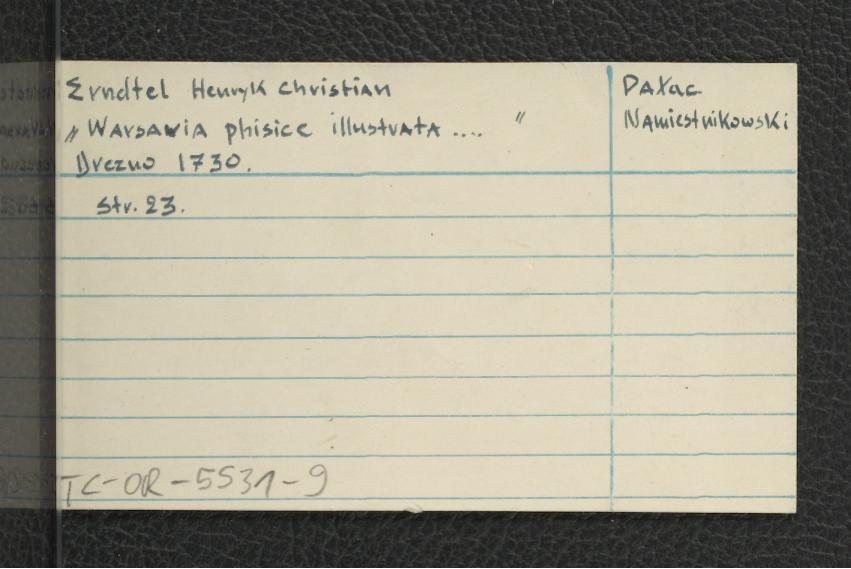 Erndtel Henryk Christian
„Warsawia phisice illustrata .... "
Drezno 1730.
str. 23.
Pałac
Namiestnikowski
TC-OR-5531-9